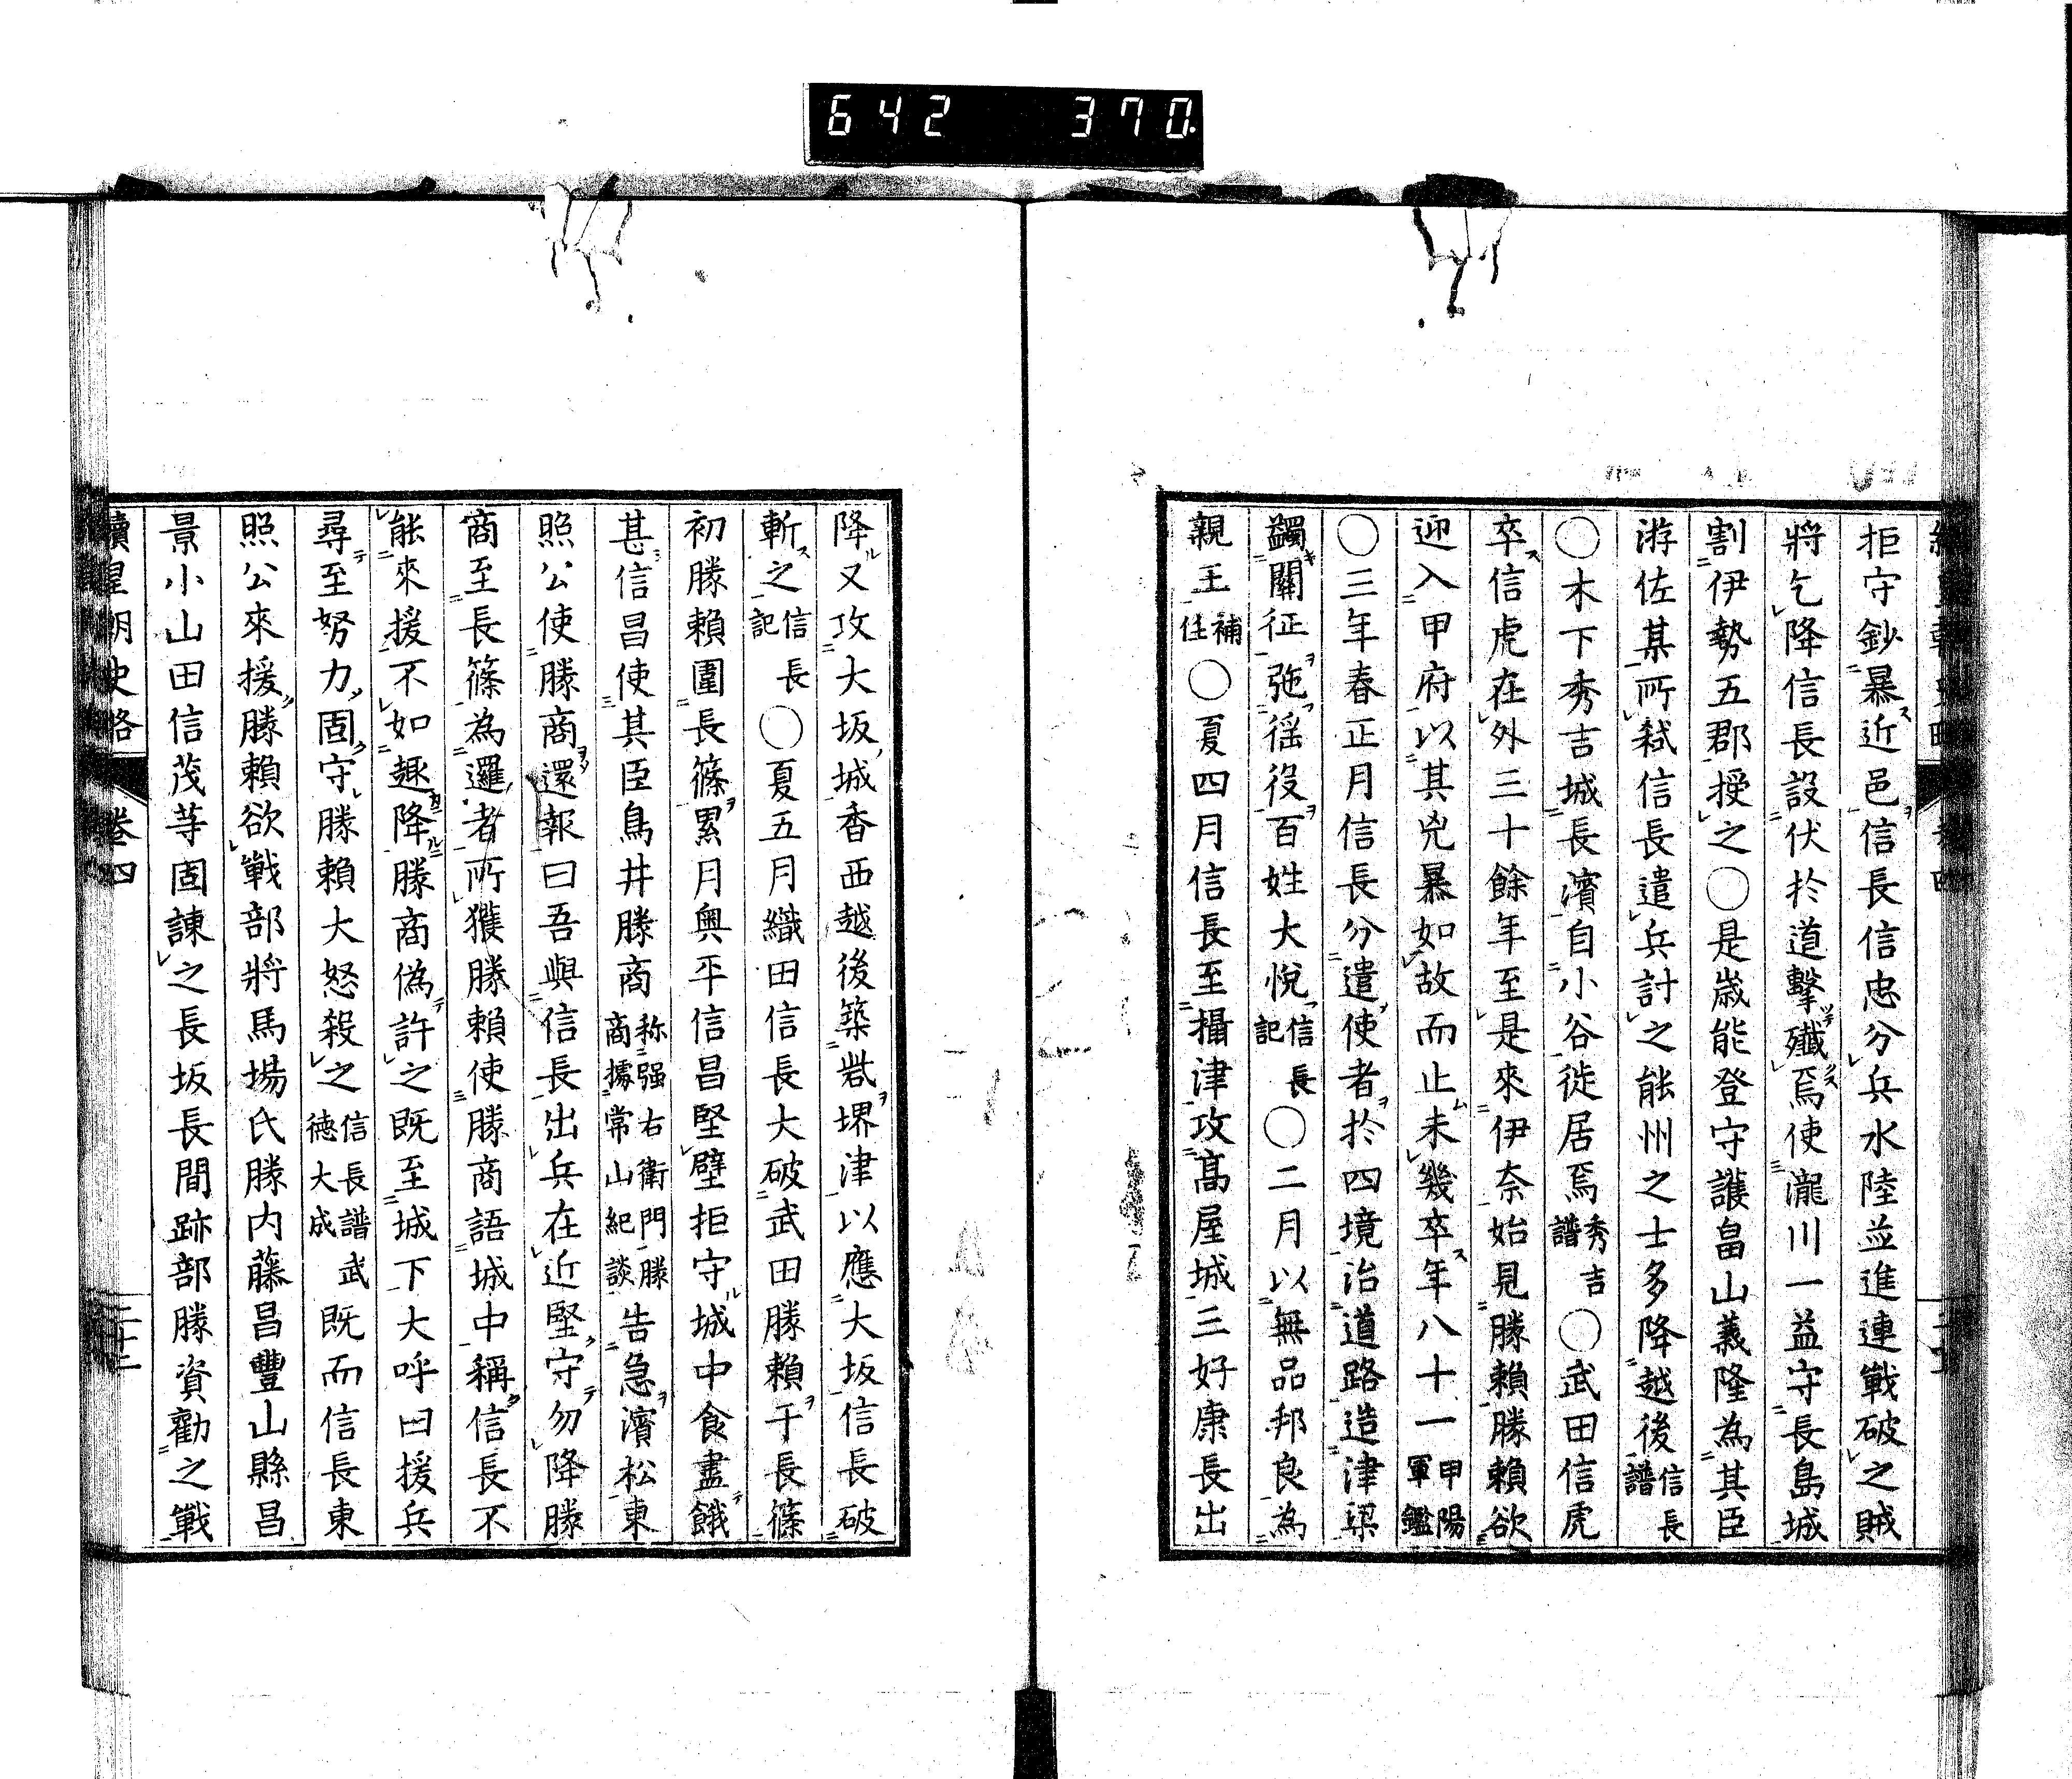 642 370
拒守鈔暴近邑信長信忠分兵水陸並進連戰破之賊
將乞降信長設伏於道擊殲焉使瀧川一益守長島城
割伊勢五郡授之○是歲能登守護畠山義隆為其臣
游佐某所弑信長遣兵討之能州之士多降越後信長譜
○木下秀吉城長濱自小谷徙居焉秀吉譜○武田信虎
卒信虎在外三十餘年至是來伊奈始見勝賴勝賴欲
迎入甲府以其兇暴如故而止未幾卒年八十一甲陽軍鑑
○三年春正月信長分遣使者於四境治道路造津梁
蠲關征弛徭役百姓大悅信長記○二月以無品邦良為
親王補任○夏四月信長至攝津攻高屋城三好康長出
降又攻大坂城香西越後築砦堺津以應大坂信長破
斬之信長記○夏五月織田信長大破武田勝賴于長篠
初勝賴圍長篠累月奧平信昌堅壁拒守城中食盡餓
甚信昌使其臣鳥井勝商称强右衛門勝商據常山紀談告急濱松東
照公使勝商還報曰吾與信長出兵在近堅守勿降勝
商至長篠為邏者所獲勝賴使勝商語城中稱信長不
能來援不如趣降勝商偽許之既至城下大呼曰援兵
尋至努力固守勝賴大怒殺之信長譜武德大成既而信長東
照公來援勝賴欲戰部將馬場氏勝內藤昌豐山縣昌
景小山田信茂等固諫之長坂長間跡部勝資勸之戰
續皇朝史略 卷四 二十二